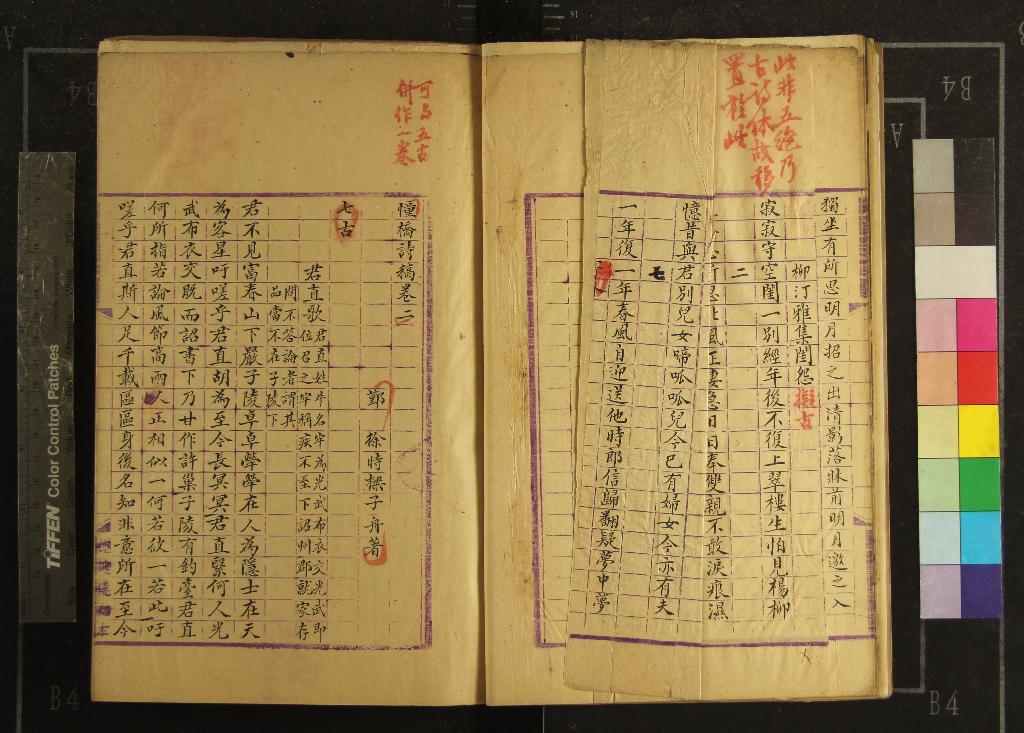 此非五絕乃
古詩体故移
置於此
獨坐有所思明月招之出清影落牀前明月邀之入
柳汀雅集閨怨擬古
寂寂守空閨一別經年後不復上翠樓生怕見楊柳
二
日日奉雙親不敢淚痕濕
憶昔與君別兒女啼呱呱兒今已有婦女今亦有夫
七
一年復一年春風自迎送他時郎信歸翻疑夢中夢
可与五古
併作一卷
憧橋詩稿卷二
鄞 徐時樑子舟著
七古
君直歌 君直姓牛名牢為光武布衣交光武即
位召之牢稱疾不至下詔州郡就家存
問不答論者謂其
品當不在子陵下
君不見富春山下嚴子陵卓卓犖犖在人為隱士在天
為客星吁嗟乎君直胡為至今長冥冥君直繄何人光
武布衣交既而詔書下乃甘作許巢子陵有釣臺君直
何所指若論風節高兩人正相似一何若彼一若此吁
嗟乎君直斯人足千載區區身後名知非意所在至今
TIFFEN Color Control Patches
B4
B4
B4
B4